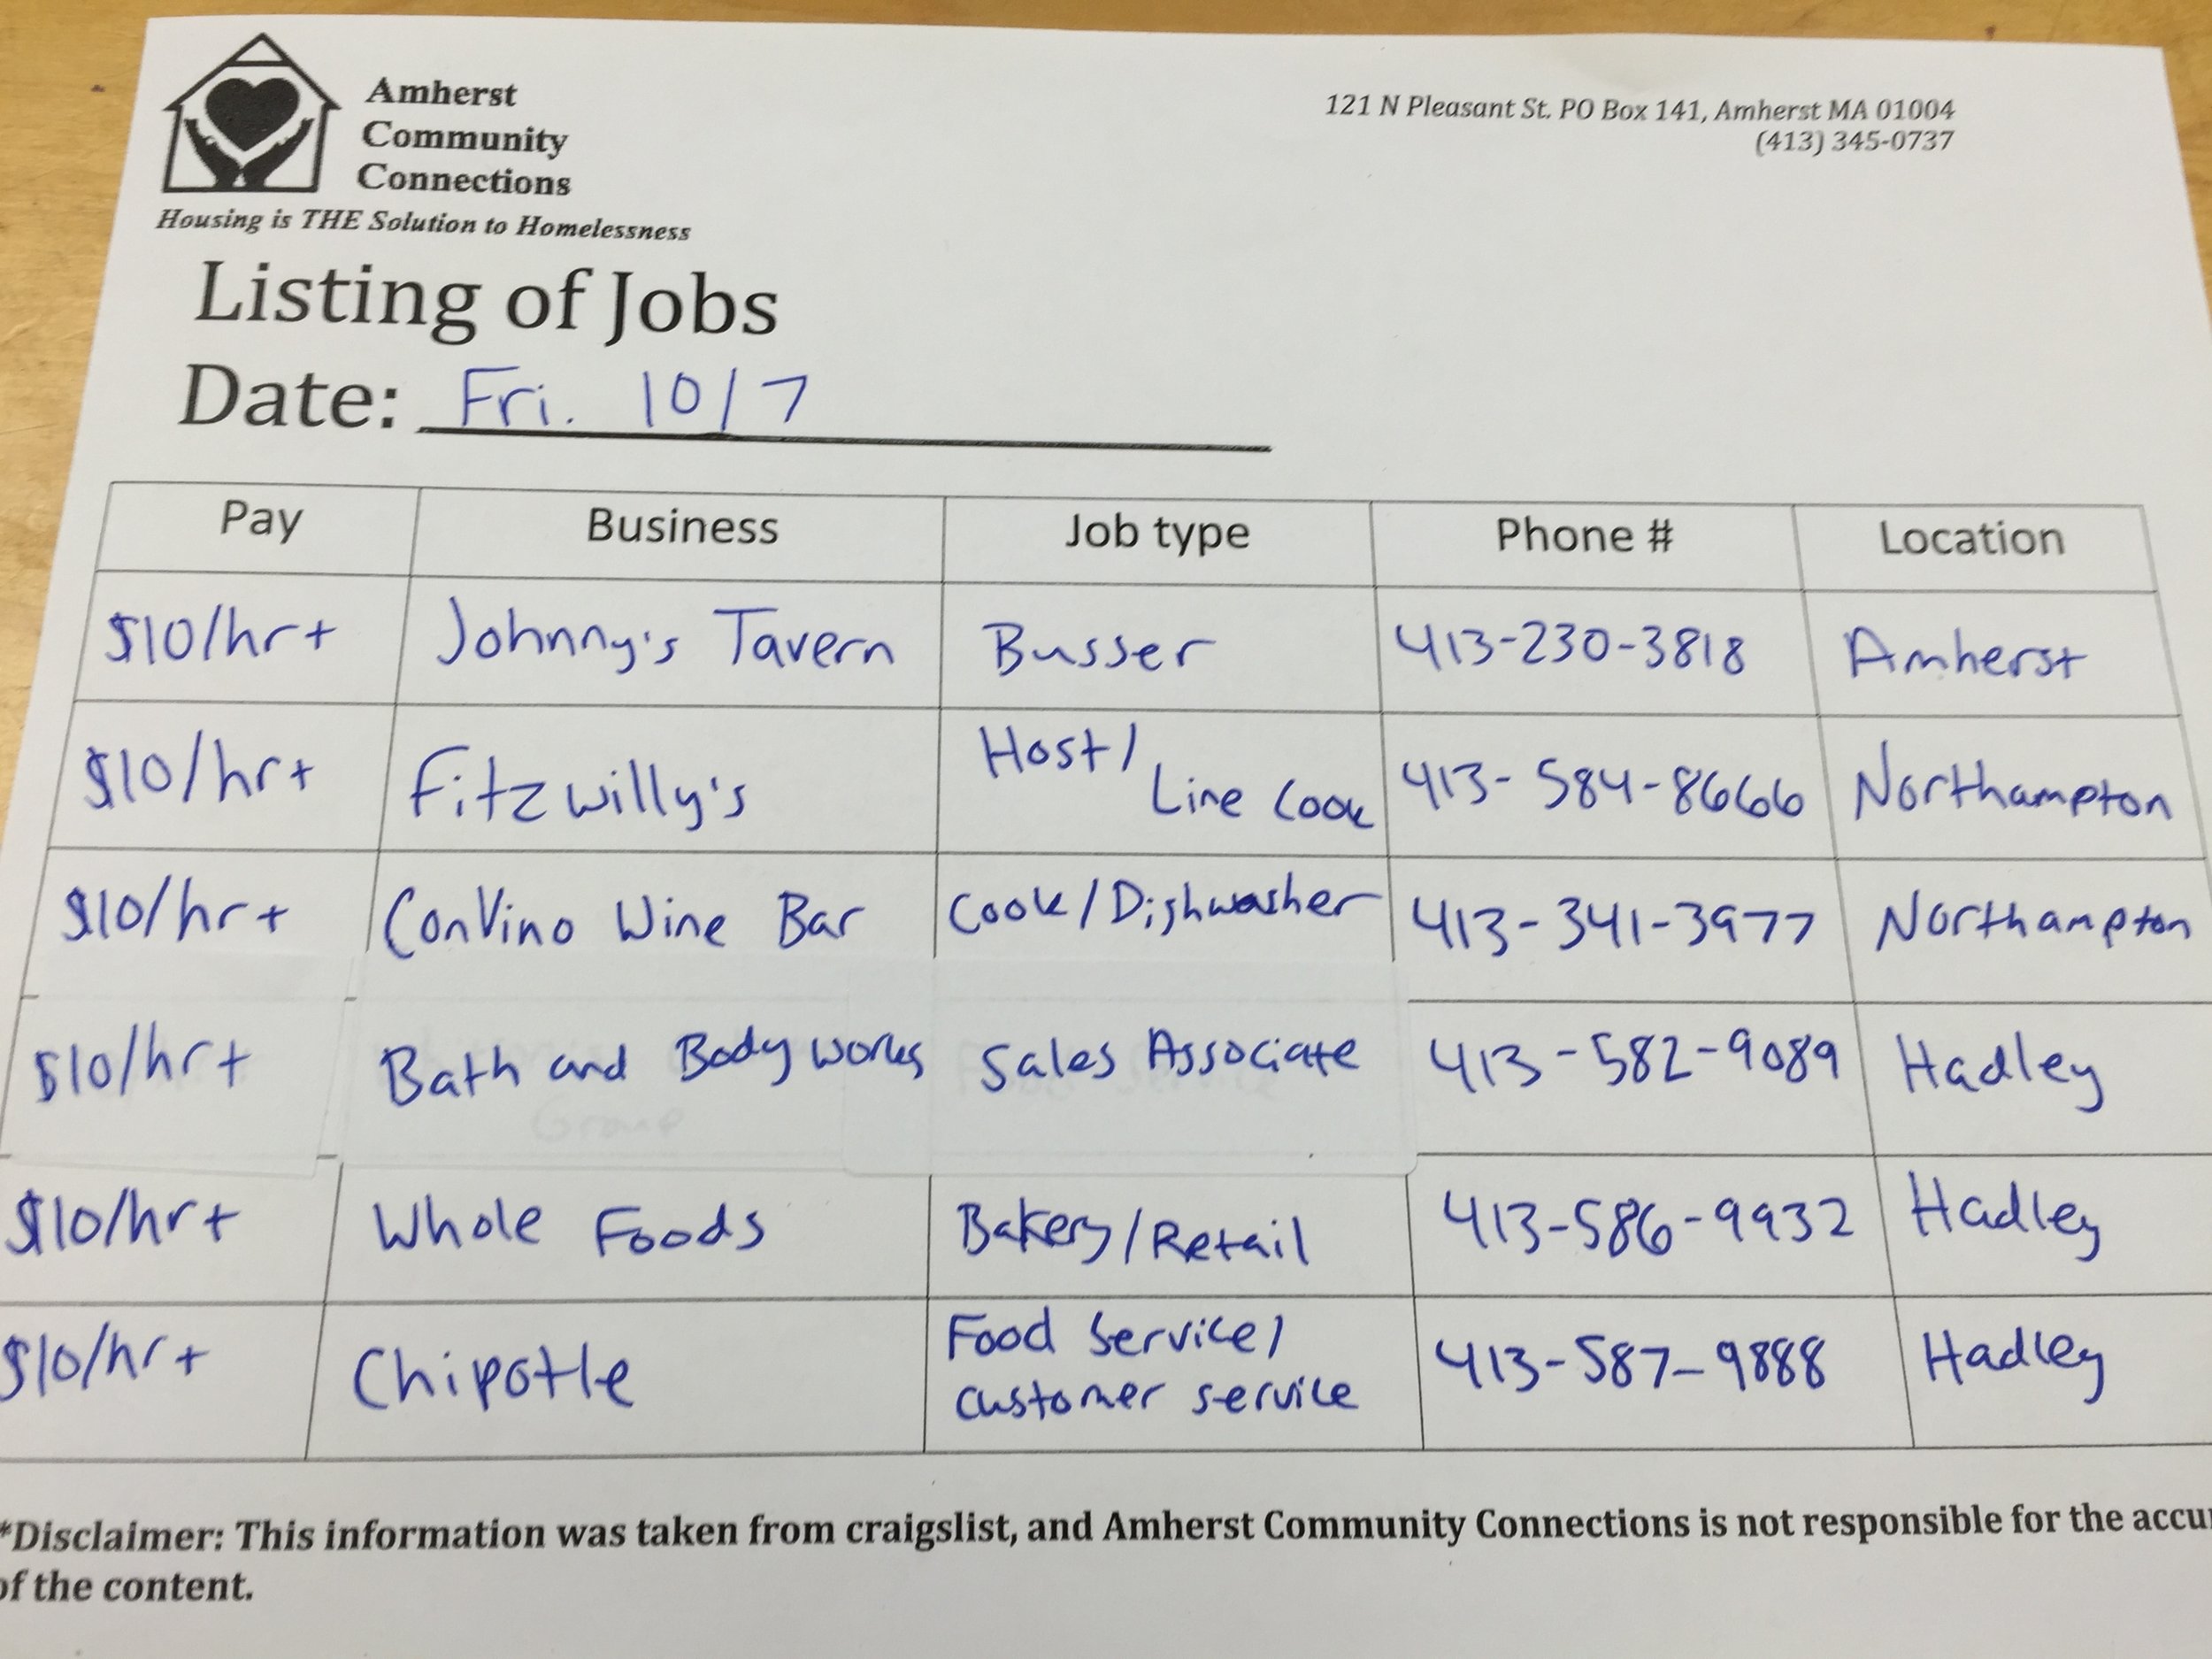 Amherst
Community
Connections
Housing is THE Solution to Homelessness
121 N Pleasant St. PO Box 141, Amherst MA 01004
(413) 345-0737
Listing of Jobs
Date: Fri. 10/7
Pay Business Job type Phone # Location
$10/hr+ Johnny's Tavern Busser 413-230-3818 Amherst
$10/hr+ Fitzwilly's Host/ Line Cook 413-584-8666 Northampton
$10/hr+ ConVino Wine Bar Cook/Dishwasher 413-341-3977 Northampton
$10/hr+ Bath and Body works Sales Associate 413-582-9089 Hadley
$10/hr+ Whole Foods Bakery/Retail 413-586-9932 Hadley
$10/hr+ Chipotle Food Service/ 413-587-9888 Hadley
customer service
*Disclaimer: This information was taken from craigslist, and Amherst Community Connections is not responsible for the accu
of the content.